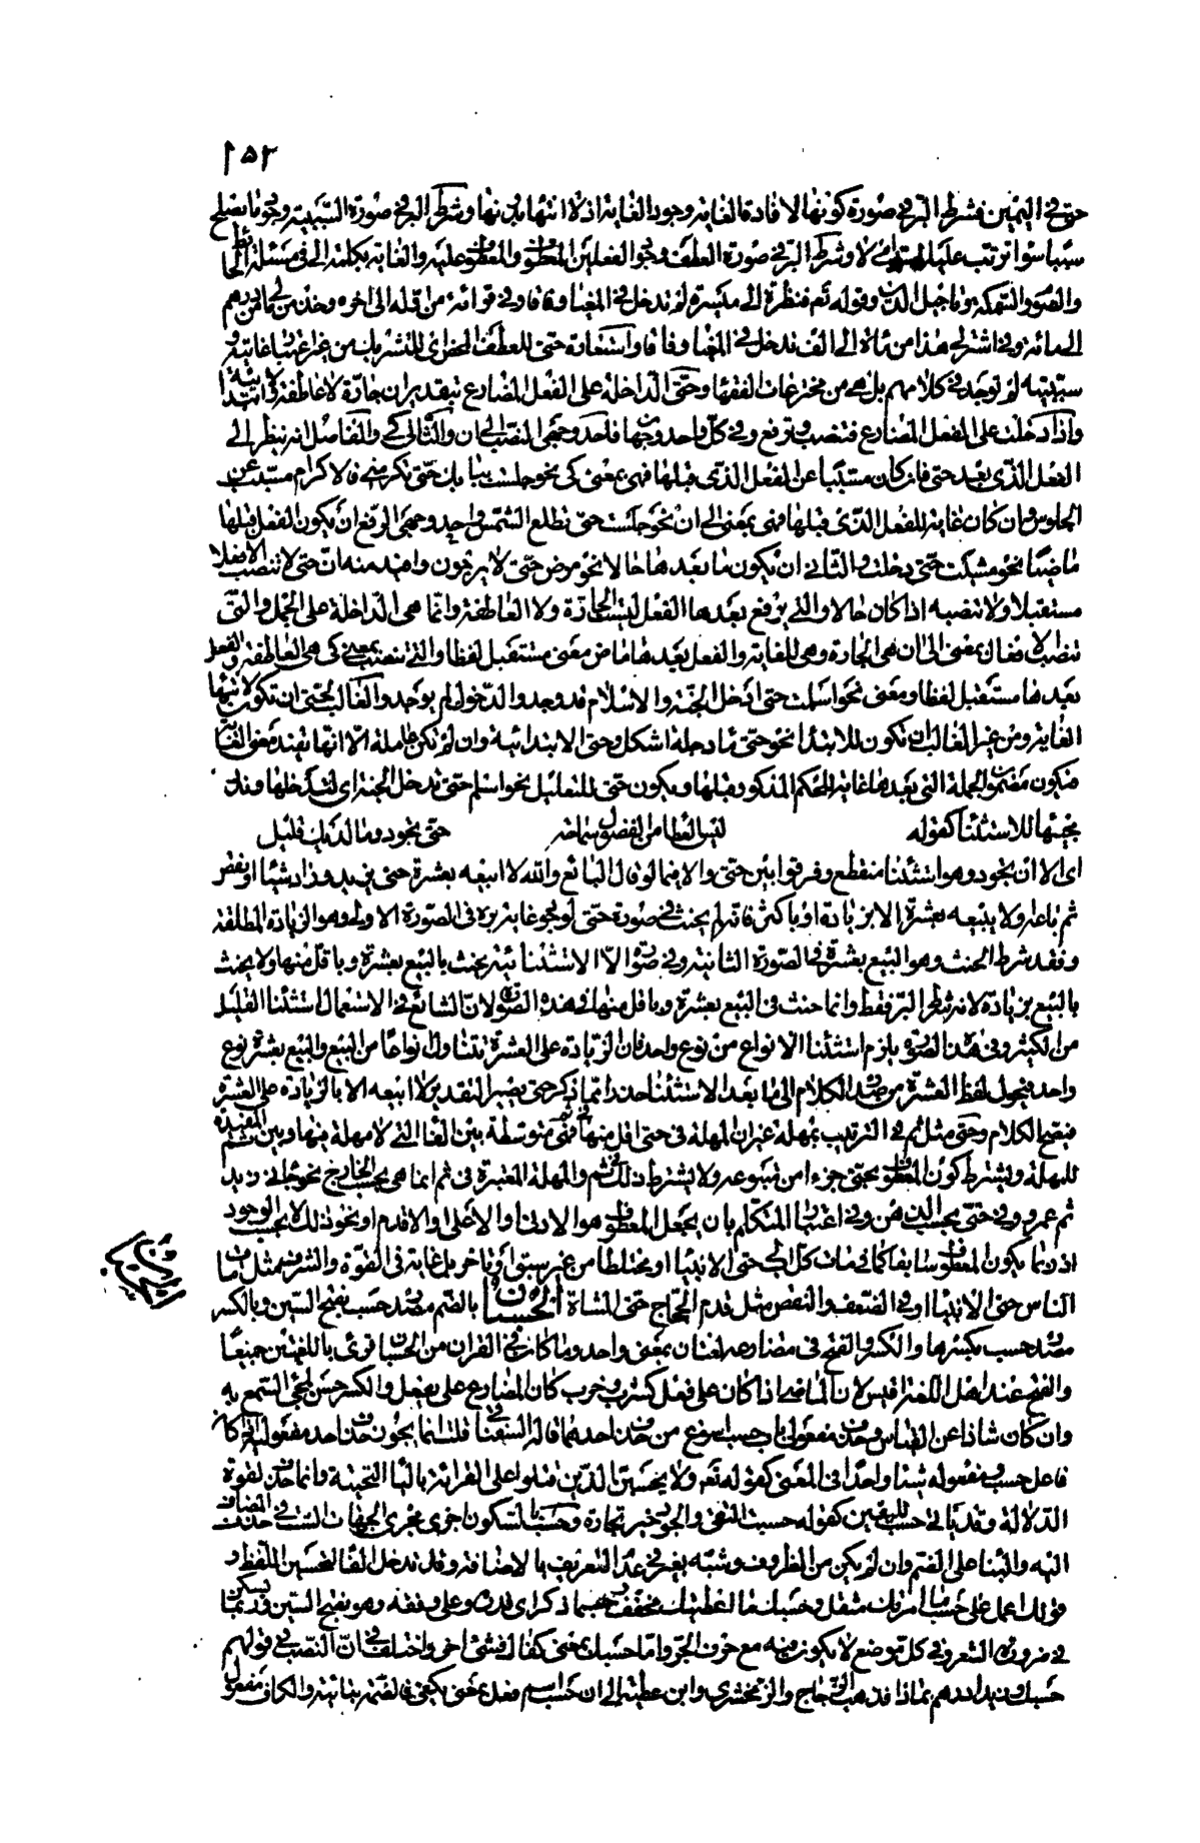 ١٥٣
حتى في اليمين فشرط البر في صورة كونها لافادة الغاية وجود الغاية اذ لا انتهاء بدونها وشرط البر في صورة السببية وجود ما يصلح
سببا سواء ترتب عليه المسبب ام لا وشرط البر في صورة العطف وجود الفعلين المعطوف والمعطوف عليه والغاية بكلمة الى في مسئلة الحائط
والصوم وتاجيل الدين وقوله تعالى فنظرة الى ميسرة لم تدخل في المغيا وفاقا وفي قرائة من اوله الى اخره وخذ من مالي من درهم
الى مائة وفي اشتر لي هذا من مائة الى الف تدخل في المغيا وفاقا واستعارة حتى للعطف المحض اي للتشريك من غير اعتبار غائية و
سببية لم توجد في كلامهم بل هي من مخترعات الفقهاء وحتى الداخلة على الفعل المضارع بتقدير ان جارة لا عاطفة ولا ابتدائية
واذا دخلت على الفعل المضارع فتنصب وترفع وفي كل واحد وجهان فاحد وجهي النصب الى ان والثاني كي والفاصل انه ينظر الى
الفعل الذي بعد حتى فان كان مسببا عن الفعل الذي قبلها فهي بمعنى كي نحو جلست ببابك حتى تكرمني فالاكرام مسبب عن
الجلوس وان كان غاية للفعل الذي قبلها فهي بمعنى الى ان نحو جلست حتى تطلع الشمس واحد وجهي الرفع ان يكون الفعل قبلها
ماضيا نحو مشيت حتى دخلت والثاني ان يكون ما بعدها حالا نحو مرض حتى لا يرجون وافيد منه ان حتى لا تنصب الا فعلا
مستقبلا ولا تنصبه اذا كان حالا والتي يرفع بعدها الفعل ليست الجارة ولا العاطفة وانما هي الداخلة على الجمل والتي
تنصب الافعال بمعنى الى ان هي الجارة وهي للغاية والفعل بعدها ماض معنى مستقبل لفظا والتي تنصب بمعنى كي هي العاطفة والفعل
بعدها مستقبل لفظا ومعنى نحو اسلمت حتى ادخل الجنة والاسلام قد وجد والدخول لم يوجد والغالب لحتى ان تكون لانتهاء
الغاية ومن غير الغالب ان تكون للابتداء نحو حتى ماء دجلة اشكل وحتى الابتدائية وان لم تكن عاملة الا انها تفيد معنى الغاية
فيكون مضمون الجملة التي بعدها غاية الحكم المذكور قبلها ويكون حتى للتعليل نحو اسلم حتى تدخل الجنة اي لتدخلها وندر
مجيئها للاستثناء كقوله ليس العطاء من الفضول سماحة حتى تجود وما لديك قليل
اي الا ان تجود وهو استثناء منقطع وفرقوا بين حتى والا فيما لو قال البائع والله لا ابيعه بعشرة حتى يزيد وزاد شيئا او نقص
ثم باعه ولا يبيعه بعشرة الا بزيادة او باكثر فانه لم يحنث في صورة حتى لوجود غاية بره في الصورة الاولى وهو الزيادة المطلقة
وفقد شرط الحنث وهو البيع بعشرة في الصورة الثانية وفي صورة الا الاستثنائية يحنث بالبيع بعشرة وباقل منها ولا يحنث
بالبيع بزيادة لانه شرط البر فقط وانما حنث في البيع بعشرة وباقل منها في هذه الصورة لان الشائع في الاستعمال استثناء القليل
من الكثير وفي هذه الصورة يلزم استثناء الانواع من نوع واحد فان الزيادة على العشرة يتناول انواعا من البيع والبيع بعشرة نوع
واحد فيحول لفظ العشرة من صدر الكلام الى ما بعد الاستثناء حتى يصير التقدير لا ابيعه الا بالزيادة على العشرة
فيصح الكلام وحتى مثل ثم في الترتيب بمهلة غير ان المهلة في حتى اقل منها في ثم فهي متوسطة بين الفاء التي لا مهلة فيها وبين ثم المفيدة
للمهلة ويشترط كون المعطوف بحتى جزءا من متبوعه ولا يشترط ذلك في ثم والمهلة المعتبرة في ثم انما هي بحسب الخارج نحو جاءني زيد
ثم عمرو وفي حتى بحسب الذهن وفي اعتبار المتكلم بان يجعل المعطوف هو الادنى او الاعلى والاقدم او نحو ذلك لا بحسب الوجود
اذ ربما يكون المعطوف سابقا كما في مات كل اب حتى الانبياء او مختلطا من غير سبق او تاخر بل غاية في القوة والشرف مثل مات
الناس حتى الانبياء او في الضعف والنقص مثل قدم الحجاج حتى المشاة الحسبان بالضم مصدر حسب بفتح السين وبالكسر
مصدر حسب بكسرها والكسر والفتح في مضارعه لغتان بمعنى واحد وما كان في القران من الحسبان قرئ باللغتين جميعا
والفتح عند اهل اللغة اقيس لان الماضي اذا كان على فعل كشرب وخرب كان المضارع على يفعل والكسر حسن لمجئ السمع به
وان كان شاذا عن القياس وحذف مفعولي باب حسب اسوغ من حذف احدهما قاله السغناقي قلت انما يجوز حذف احد مفعوليه اذا كان
فاعل حسب ومفعوله شيئا واحدا في المعنى كقوله تعالى ولا يحسبن الذين قتلوا على القرائة بالياء التحتية وانما حذف لقوة
الدلالة وقد ياتي حسب لليقين كقوله حسبت التقى والجود خير تجارة وحسب بالسكون اجري مجرى الجهات الست في حذف المضاف
اليه والبناء على الضم وان لم يكن من الظروف وشبه بغير في عدم التعريف بالاضافة وقد تدخل الفاء لتحسين اللفظ و
قولك اعمل على حسب ما امرتك مثقل وحسبك ما اعطيتك مخفف وحسبما ذكر اي قدره وعلى وفقه وهو بفتح السين وربما يسكن
في ضرورة الشعر وفي كل موضع لا يكون فيه مع حرف الجر واما حسبك بمعنى كفاك فشئ اخر واختلف في ان النصب في قولهم
حسبك وزيدا درهم بماذا فذهب الزجاج والزمخشري وابن عطية الى ان حسب اسم فعل بمعنى يكفي فالضمة بنائية والكاف مفعول